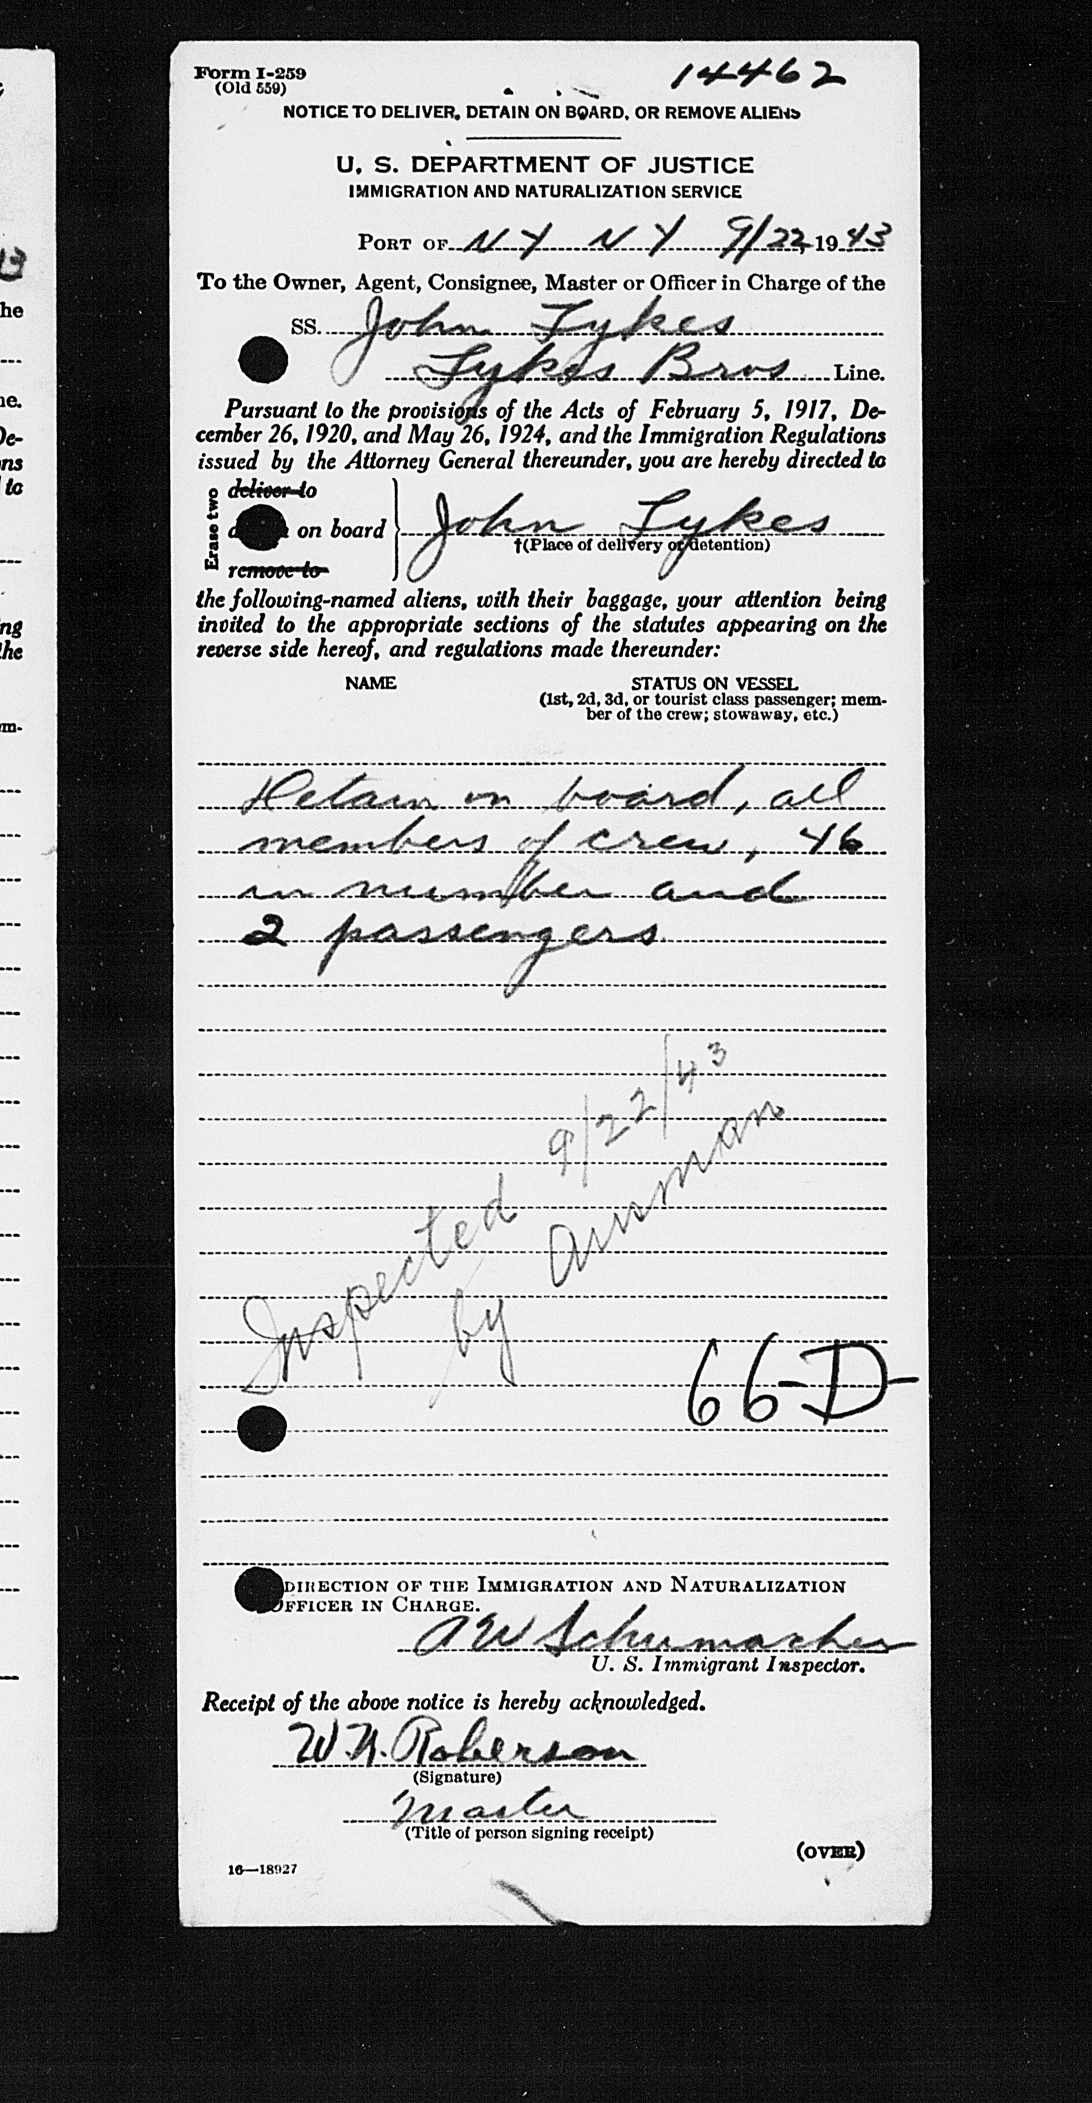 Form I-259
(Old 559)
14462
NOTICE TO DELIVER, DETAIN ON BOARD, OR REMOVE ALIENS
U. S. DEPARTMENT OF JUSTICE
IMMIGRATION AND NATURALIZATION SERVICE
PORT OF N Y N Y 9/22, 1943
To the Owner, Agent, Consignee, Master or Officer in Charge of the
SS. John Lykes
Lykes Bros Line.
Pursuant to the provisions of the Acts of February 5, 1917, De-
cember 26, 1920, and May 26, 1924, and the Immigration Regulations
issued by the Attorney General thereunder, you are hereby directed to
Erase two
deliver to
on board John Lykes
†(Place of delivery or detention)
remove to
the following-named aliens, with their baggage, your attention being
invited to the appropriate sections of the statutes appearing on the
reverse side hereof, and regulations made thereunder:
NAME STATUS ON VESSEL
(1st, 2d, 3d, or tourist class passenger; mem-
ber of the crew; stowaway, etc.)
Detain on board, all
members of crew, 46
in number and
2 passengers
Inspected 9/22/43
by
66-D-
DIRECTION OF THE IMMIGRATION AND NATURALIZATION
OFFICER IN CHARGE.
A W Schumacher
U. S. Immigrant Inspector.
Receipt of the above notice is hereby acknowledged.
W. N. Roberson
(Signature)
Master
(Title of person signing receipt)
(OVER)
16—18927